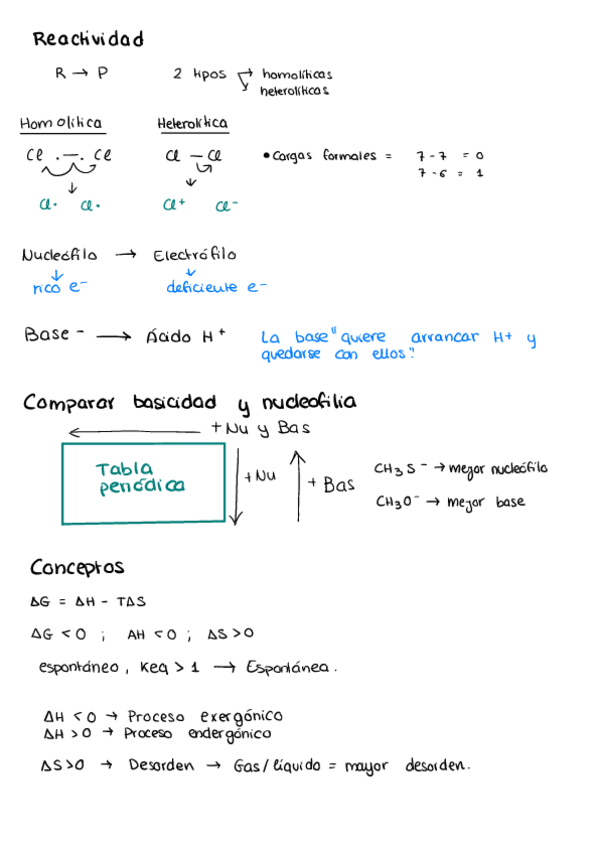 Reactividad
R → P 2 tipos → homolíticas
heterolíticas
Homolítica Heterolítica
Cl .—. Cl Cl — Cl • Cargas formales = 7-7 = 0
7-6 = 1
Cl· Cl· Cl+ Cl-
Nucleófilo → Electrófilo
rico e- deficiente e-
Base - → Ácido H+ La base "quiere arrancar H+ y
quedarse con ellos".
Comparar basicidad y nucleofilia
+ Nu y Bas
Tabla periódica
+ Nu
+ Bas
CH3S- → mejor nucleófilo
CH3O- → mejor base
Conceptos
ΔG = ΔH - TΔS
ΔG < 0 ; ΔH < 0 ; ΔS > 0
espontáneo, Keq > 1 → Espontánea.
ΔH < 0 → Proceso exergónico
ΔH > 0 → Proceso endergónico
ΔS>0 → Desorden → Gas/líquido = mayor desorden.